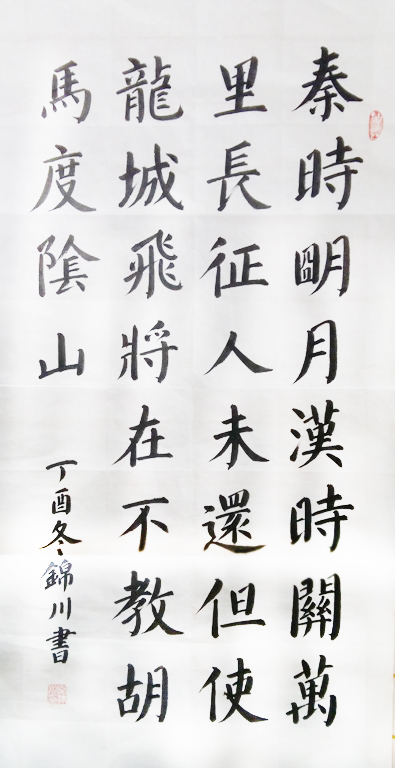 秦時朙月漢時關萬
里長征人未還但使
龍城飛將在不教胡
馬度陰山
丁酉冬錦川書